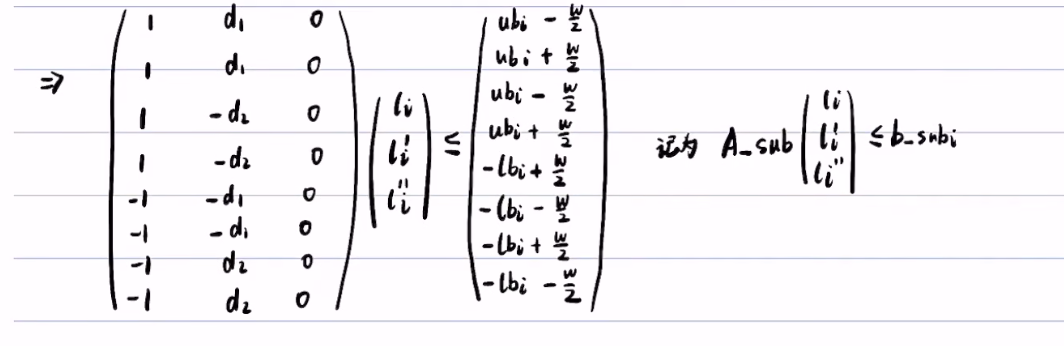 ⇒ ( 1 d₁ 0 ; 1 d₁ 0 ; 1 -d₂ 0 ; 1 -d₂ 0 ; -1 -d₁ 0 ; -1 -d₁ 0 ; -1 d₂ 0 ; -1 d₂ 0 ) ( lᵢ ; lᵢ' ; lᵢ'' ) ≤ ( ubᵢ - w/2 ; ubᵢ + w/2 ; ubᵢ - w/2 ; ubᵢ + w/2 ; -lbᵢ + w/2 ; -lbᵢ - w/2 ; -lbᵢ + w/2 ; -lbᵢ - w/2 ) 记为 A_sub ( lᵢ ; lᵢ' ; lᵢ'' ) ≤ b_subᵢ